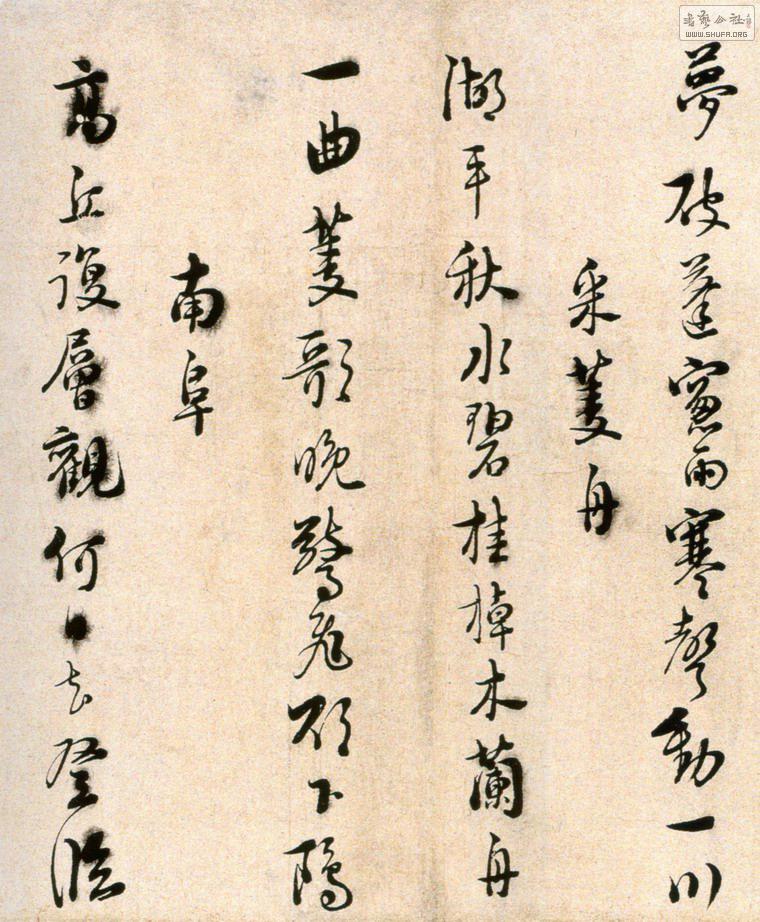 夢破蓬窻雨寒聲動一川
采菱舟
湖平秋水碧桂棹木蘭舟
一曲菱歌晚驚飛欲下鷗
南阜
高丘復層觀何日去登臨
WWW.SHUFA.ORG